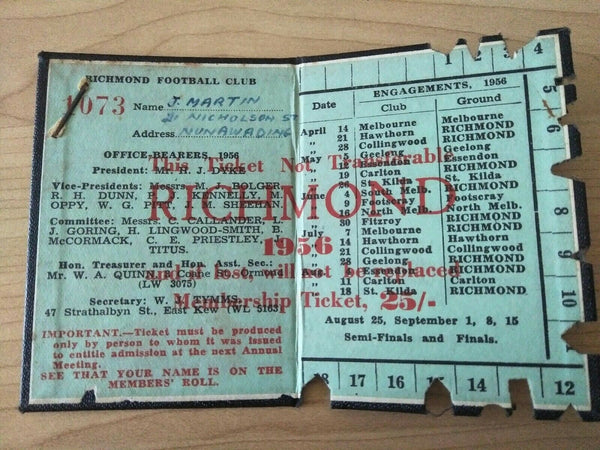 RICHMOND FOOTBALL CLUB
1073 Name J. MARTIN
21 NICHOLSON ST
Address NUNAWADING
OFFICE-BEARERS, 1956
President: Mr. H. J. DYKE
Vice-Presidents: Messrs. M. J. BOLGER,
R. H. DUNN, P. J. KENNELLY, M.
OPPY, W. G. PITT, J. M. SHEEHAN
Committee: Messrs. C. CALLANDER,
J. GORING, H. LINGWOOD-SMITH, B.
McCORMACK, C. E. PRIESTLEY, J.
TITUS.
Hon. Treasurer and Hon. Asst. Sec.:
Mr. W. A. QUINN, 7 Coombe St., Ormond
(LW 3075)
Secretary: W. J. SYMMS,
47 Strathalbyn St., East Kew (WL 5163
IMPORTANT.—Ticket must be produced
only by person to whom it was issued
to entitle admission at the next Annual
Meeting.
SEE THAT YOUR NAME IS ON THE
MEMBERS' ROLL.
This Ticket Not Transferable
RICHMOND
1956
And if lost, will not be replaced
Membership Ticket, 25/-
ENGAGEMENTS, 1956
Date Club Ground
April 14 Melbourne Melbourne
„ 21 Hawthorn RICHMOND
„ 28 Collingwood RICHMOND
May 5 Geelong Geelong
„ 12 Essendon Essendon
„ 19 Carlton RICHMOND
„ 26 St. Kilda St. Kilda
June South Melb. RICHMOND
„ 9 Footscray Footscray
„ 16 North Melb. North Melb.
„ 30 Fitzroy RICHMOND
July 7 Melbourne RICHMOND
„ 14 Hawthorn Hawthorn
„ 21 Collingwood Collingwood
„ 28 Geelong RICHMOND
Aug. Essendon RICHMOND
„ 11 Carlton Carlton
„ 18 St. Kilda RICHMOND
August 25, September 1, 8, 15
Semi-Finals and Finals.
3 4
5
6
7
8
9
10
12
14
16
17
18